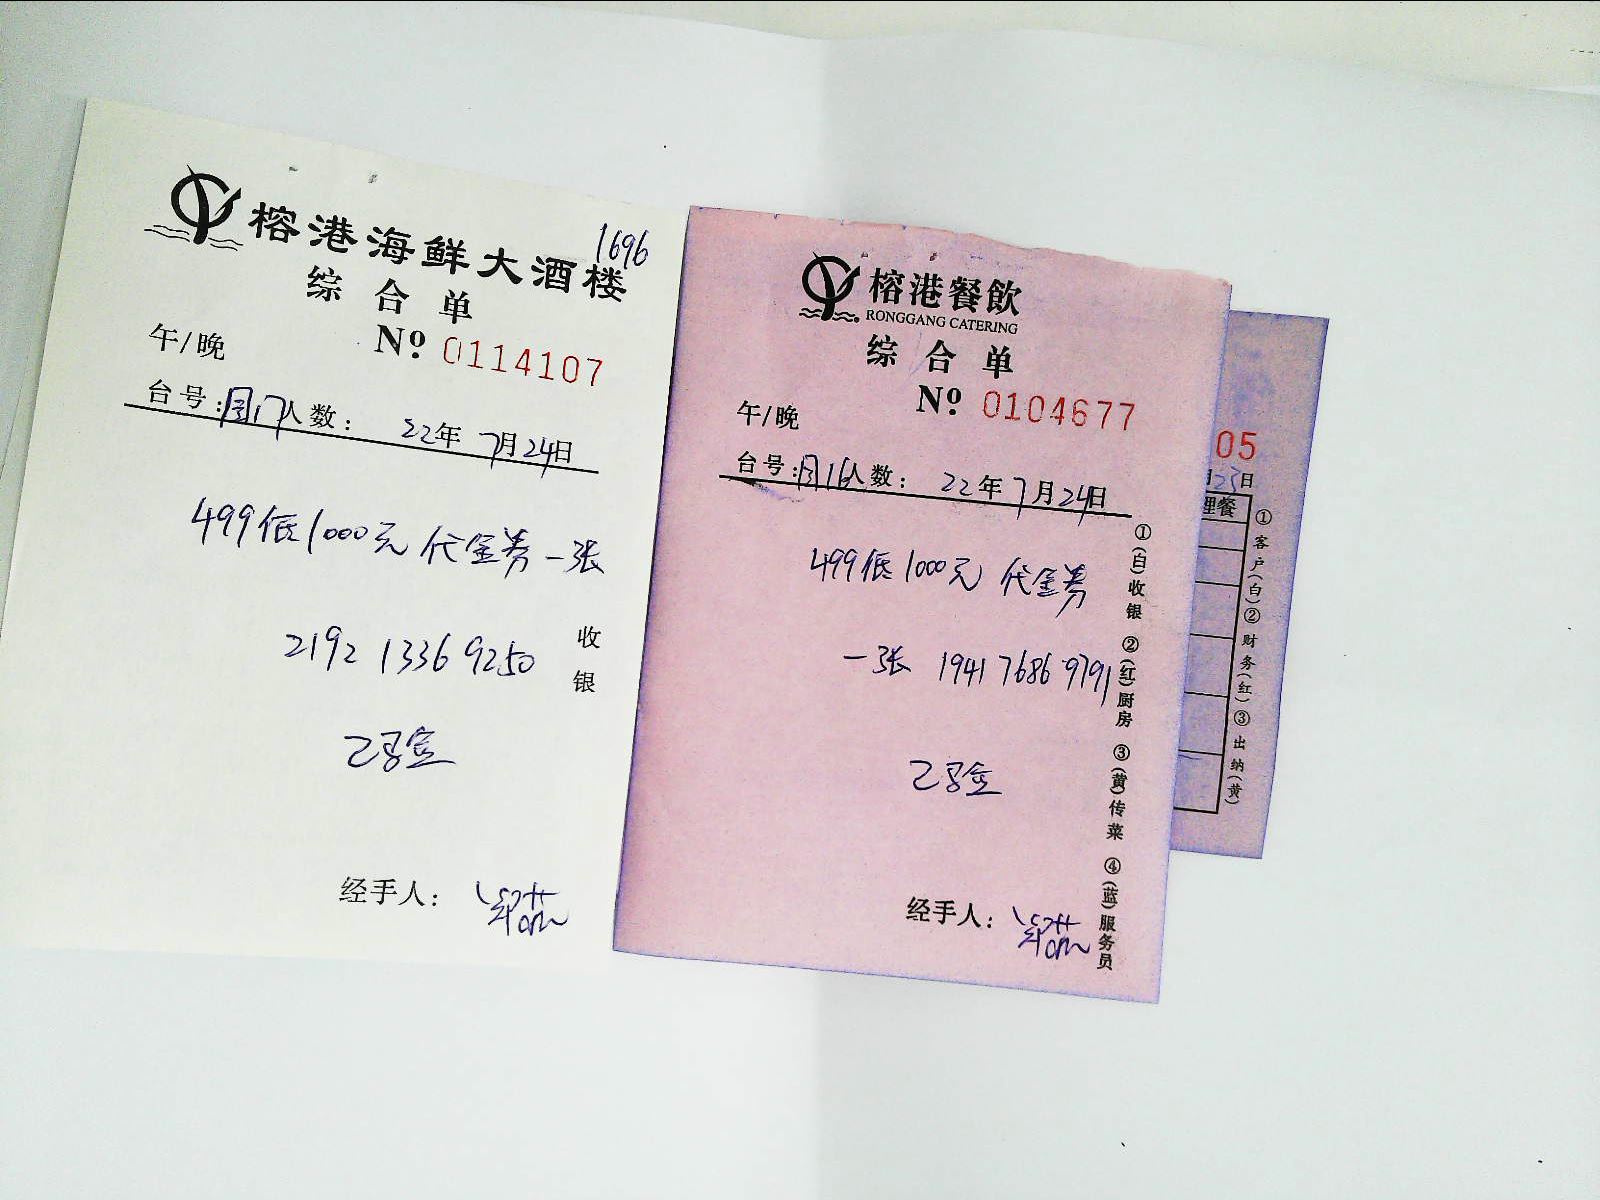 榕港海鲜大酒楼
1696
综合单
No. 0114107
午/晚
台号: 人数: 22年7月24日
499低1000元代金券一张
2192 1336 9250
收银
已另金
经手人:
榕港餐飲
RONGGANG CATERING
综合单
No. 0104677
午/晚
台号: 人数: 22年7月24日
499低1000元代金券
一张 1941 7686 9791
已另金
经手人:
①(白)收银 ②(红)厨房 ③(黄)传菜 ④(蓝)服务员
05
月23日
理餐
①客户(白)②财务(红)③出纳(黄)